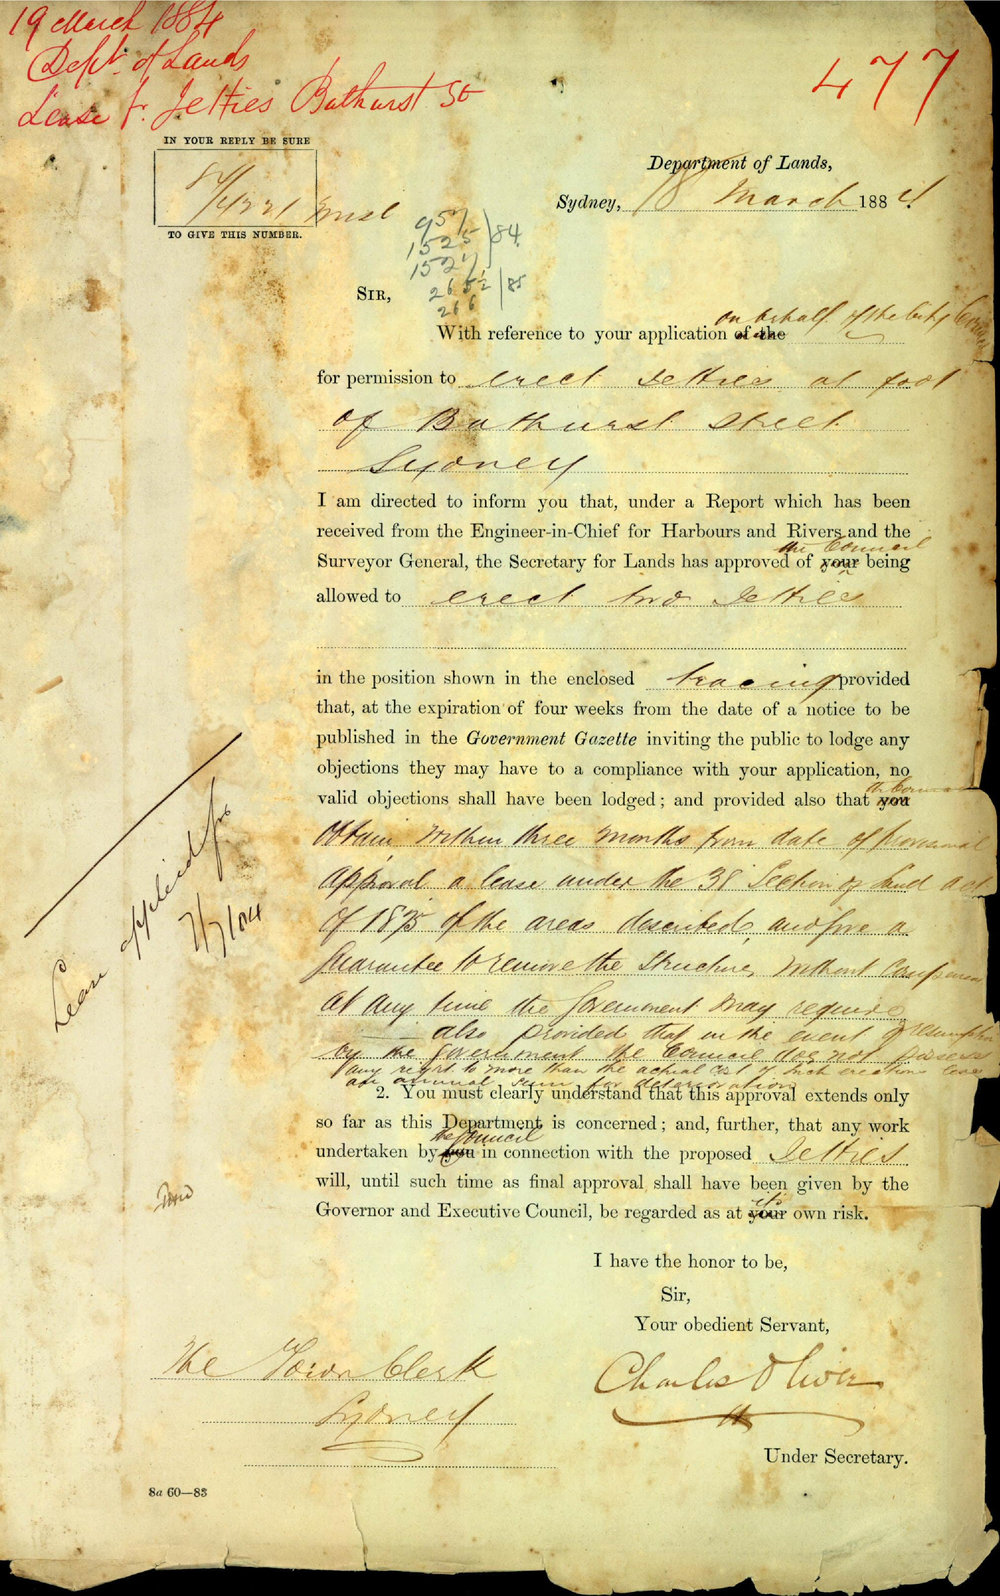 19 March 1884
Dept. of Lands
Lease fr. Jetties Bathurst St
477
IN YOUR REPLY BE SURE
84/4221 Misl
TO GIVE THIS NUMBER.
Department of Lands,
Sydney, 18 March 1884.
957
1525 } 84
1527
265½ | 85
266
SIR,
on behalf of the City Council
With reference to your application of the
for permission to erect Jetties at foot
of Bathurst Street
Sydney
I am directed to inform you that, under a Report which has been
received from the Engineer-in-Chief for Harbours and Rivers and the
the Council
Surveyor General, the Secretary for Lands has approved of your being
allowed to erect two Jetties
in the position shown in the enclosed tracing provided
that, at the expiration of four weeks from the date of a notice to be
published in the Government Gazette inviting the public to lodge any
objections they may have to a compliance with your application, no
the Council
valid objections shall have been lodged; and provided also that you
obtain within three months from date of provisional
approval a lease under the 38 Section of Land Act
of 1875 of the areas described, and give a
Guarantee to remove the structures without
at any time the Government may require
also provided that in the event of resumption
by the Government the Council does not possess
any right to more than the actual cost of such erections less
an annual sum for deterioration
2. You must clearly understand that this approval extends only
so far as this Department is concerned; and, further, that any work
the Council
undertaken by you in connection with the proposed Jetties
will, until such time as final approval shall have been given by the
its
Governor and Executive Council, be regarded as at your own risk.
I have the honor to be,
Sir,
Your obedient Servant,
Charles Oliver
Under Secretary.
The Town Clerk
Sydney
8a 60—83
Lease applied for